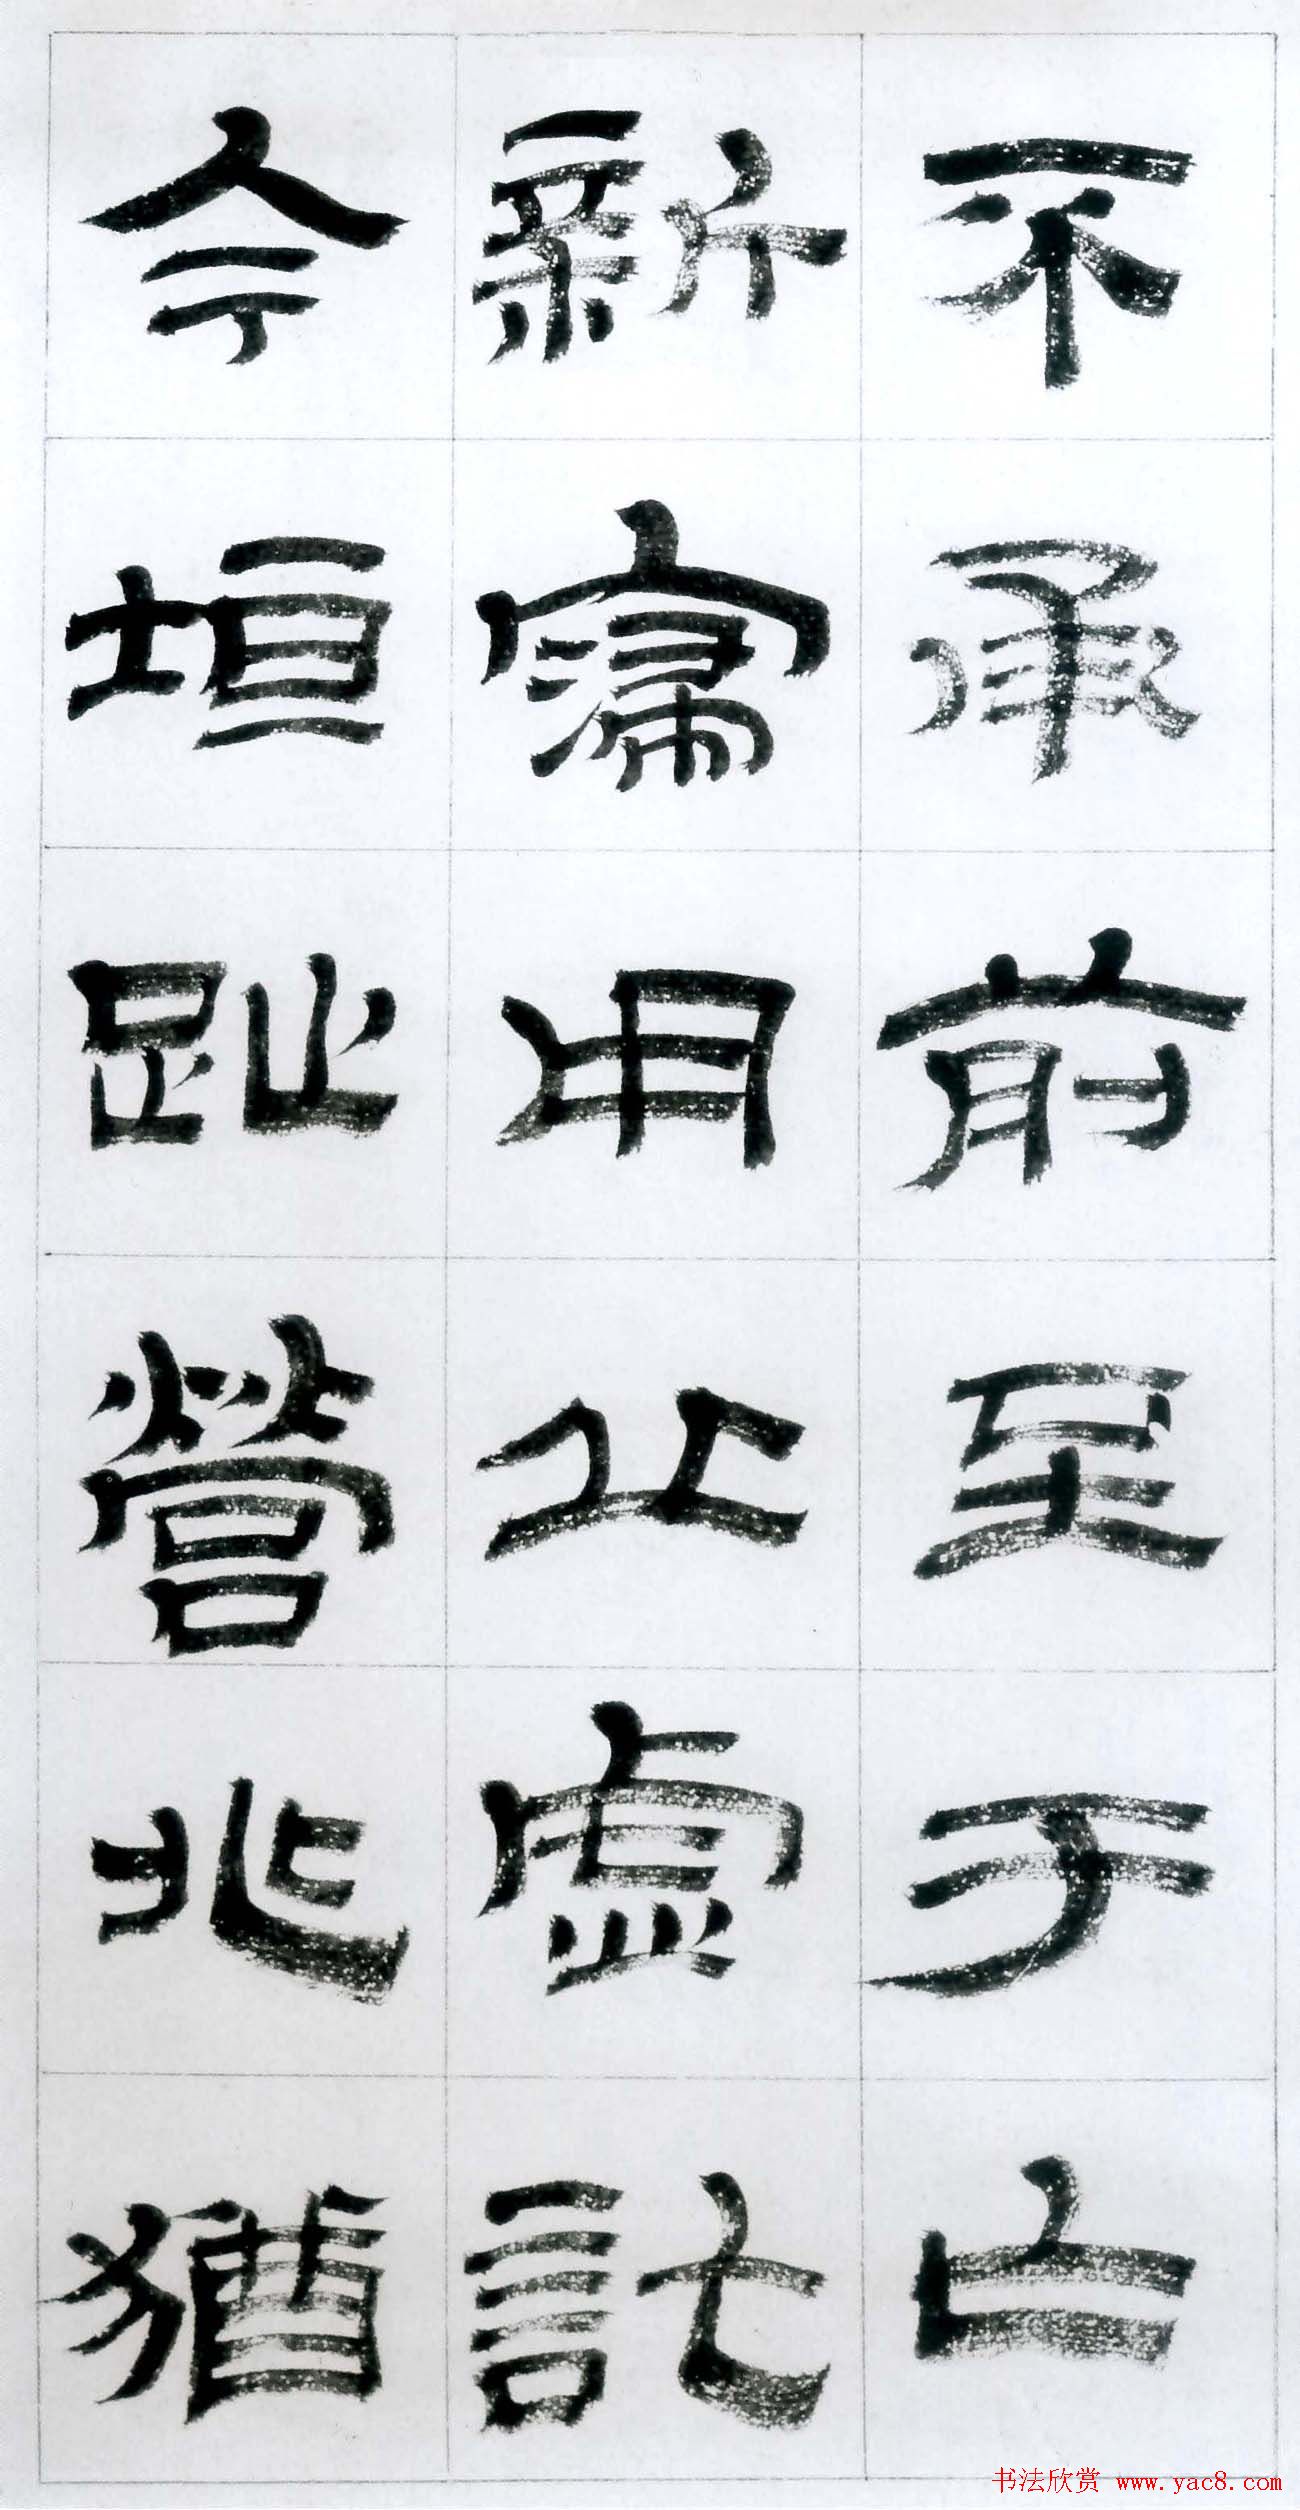 不承前至于亡
新寖用丘虚訖
今垣趾營兆猶
书法欣赏 www.yac8.com